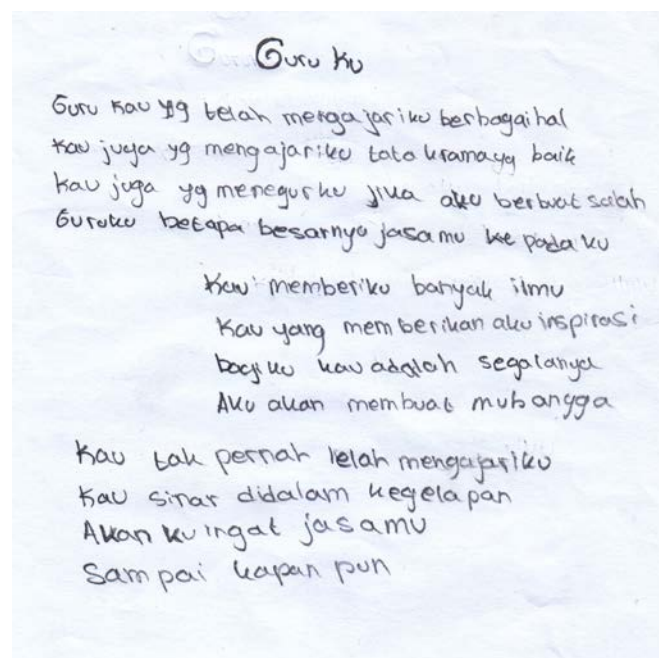 Guru Ku
Guru kau yg telah mengajariku berbagai hal
Kau juga yg mengajariku tata krama yg baik
Kau juga yg menegurku jika aku berbuat salah
Guruku betapa besarnya jasamu ke pada ku
Kau memberiku banyak ilmu
Kau yang memberikan aku inspirasi
bagi ku kau adalah segalanya
Aku akan membuat mu bangga
Kau tak pernah lelah mengajariku
Kau sinar didalam kegelapan
Akan ku ingat jasamu
Sampai kapan pun